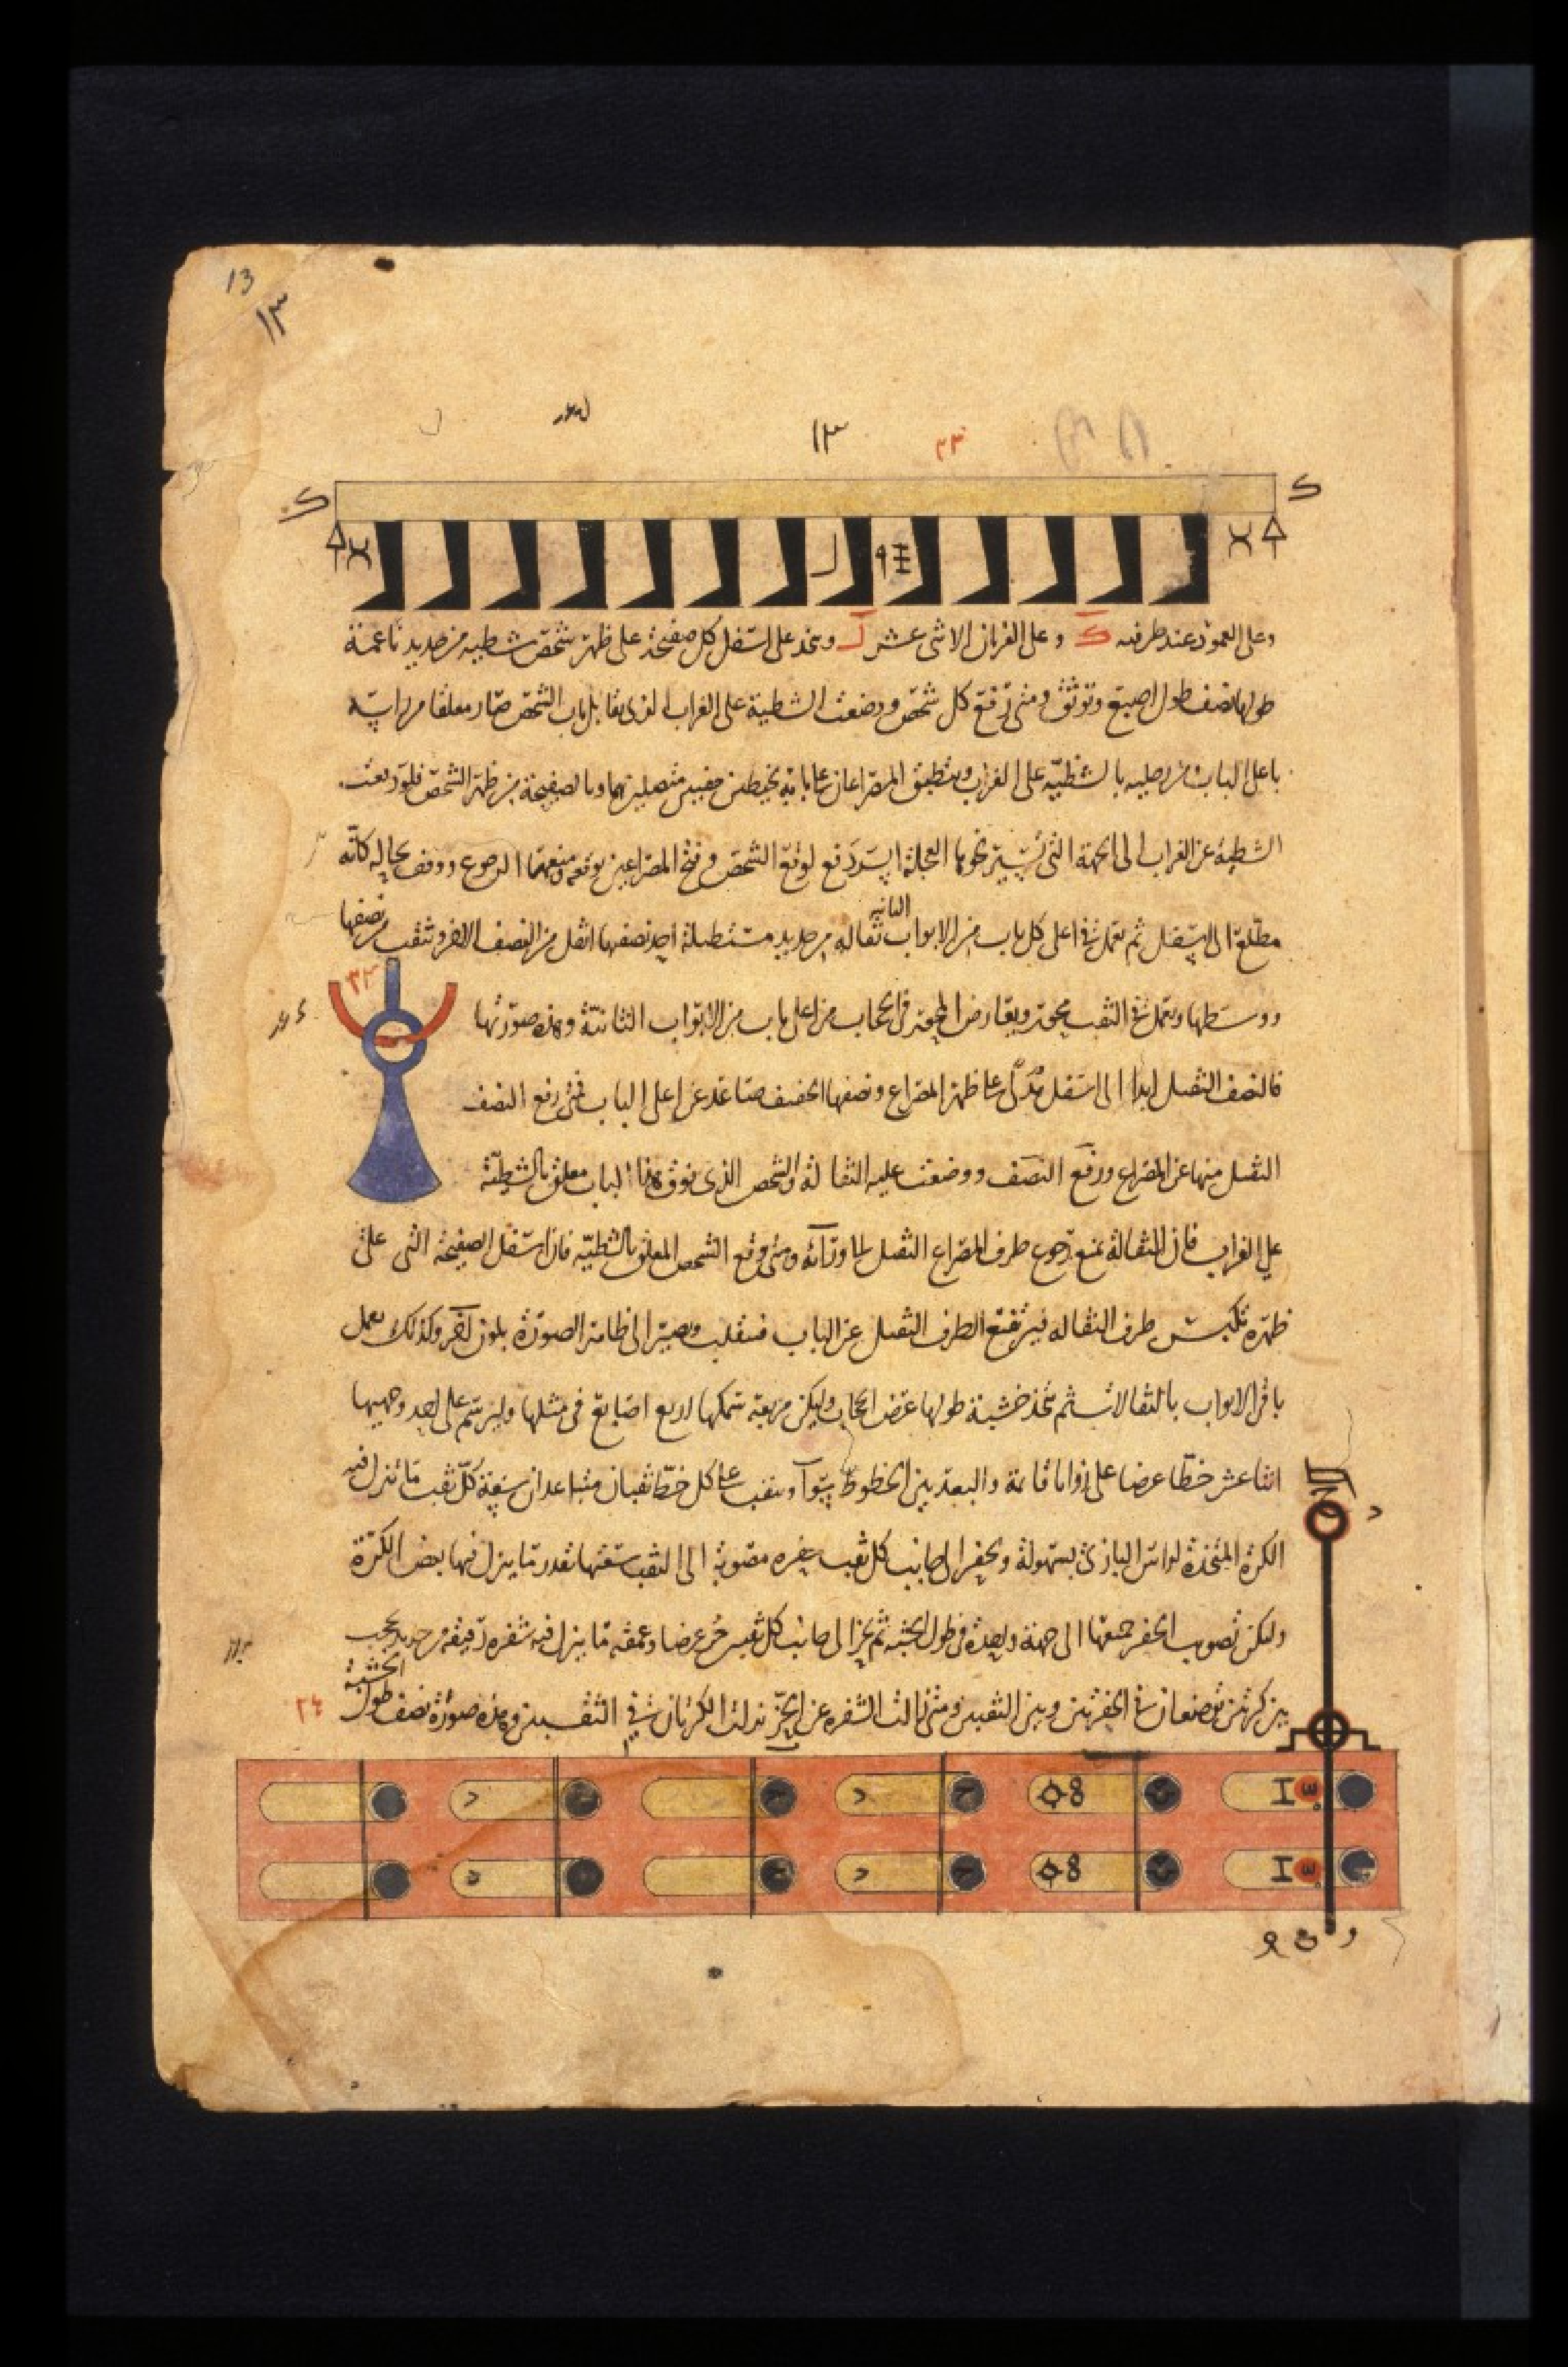 13
١٣
١٣
٢٣
وعلى العمود عند طرفيه ك وعلى الغربان الاثنى عشر ل ويتخذ على اسفل كل صفيحة على ظهر شخص شطيه من حديد ناعمة
طولها نصف طول اصبع وتوثق ومتى رفع كل شخص ووضعت الشطية على الغراب الذى يقابل باب الشخص صار معلقا
باعلى الباب بالشظيه على الغراب وينطبق المصراعان بخيطين متصلين بهما وبالصفيحة من ظهر الشخص فلو دفعت
الشطيه عن الغراب الى الجهة التى تسير نحوها العجلة ايسر دفع لوقع الشخص وفتح المصراعين بوقعه ومنعهما الرجوع ووقف بحاله كانه
مطلع الى اسفل ثم يعمل فى اعلى كل باب من الابواب الثانيه ثقاله من حديد مستطيلة احد نصفيها اثقل من النصف الاخر وتثقب من نصفها
ووسطها ويعمل فى الثقب محور ويعارض المحور فى الحجاب من اعلى باب من الابواب الثانية وهذه صورتها
٣٢
فالنصف الثقيل ابدا الى اسفل مدلى على ظهر المصراع ونصفها الخفيف صاعد عن اعلى الباب فمتى رفع النصف
الثقيل منها عن المصراع ورفع النصف ووضعت عليه الثقالة والشخص الذى فوق هذا الباب معلق بالشطية
على الغراب فان الثقالة تمنع رجوع طرف المصراع الثقيل لما وراءه ومتى وقع الشخص المعلق بالشطيه فان اسفل الصفيحة التى على
ظهره تكبس طرف الثقاله فيرتفع الطرف الثقيل عن الباب فينقلب ويصير الى ظاهر الصورة بلون اخر وكذلك يعمل
باقى الابواب بالثقالات ثم تتخذ خشبة طولها عرض الحجاب ولتكن مربعة سمكها اربع اصابع فى مثلها وليرسم على احد وجهيها
اثنا عشر خطا عرضا على زوايا قائمة والبعد بين الخطوط سوآ ويثقب على كل خط ثقبان متباعدان سعة كل ثقب ما تنزل فيه
الكرة المتخذة لراس البازى بسهولة ويحفر الى جانب كل ثقب حفره مصوبه الى الثقب سعتها بقدر ما ينزل فيها بعض الكرة
ولتكن تصويب الحفر جميعها الى جهة واحدة فى طول الخشبه ثم يحز الى جانب كل ثقبين حز عرضا وعمقه ما ينزل فيه شفره رقيقه من حديد تحجب
بين كرتين توضعان فى الحفرتين وبين الثقبين ومتى زالت الشفره عن الحز نزلت الكرتان فى الثقبين وهذه صورة نصف طول الخشبة
٢٤